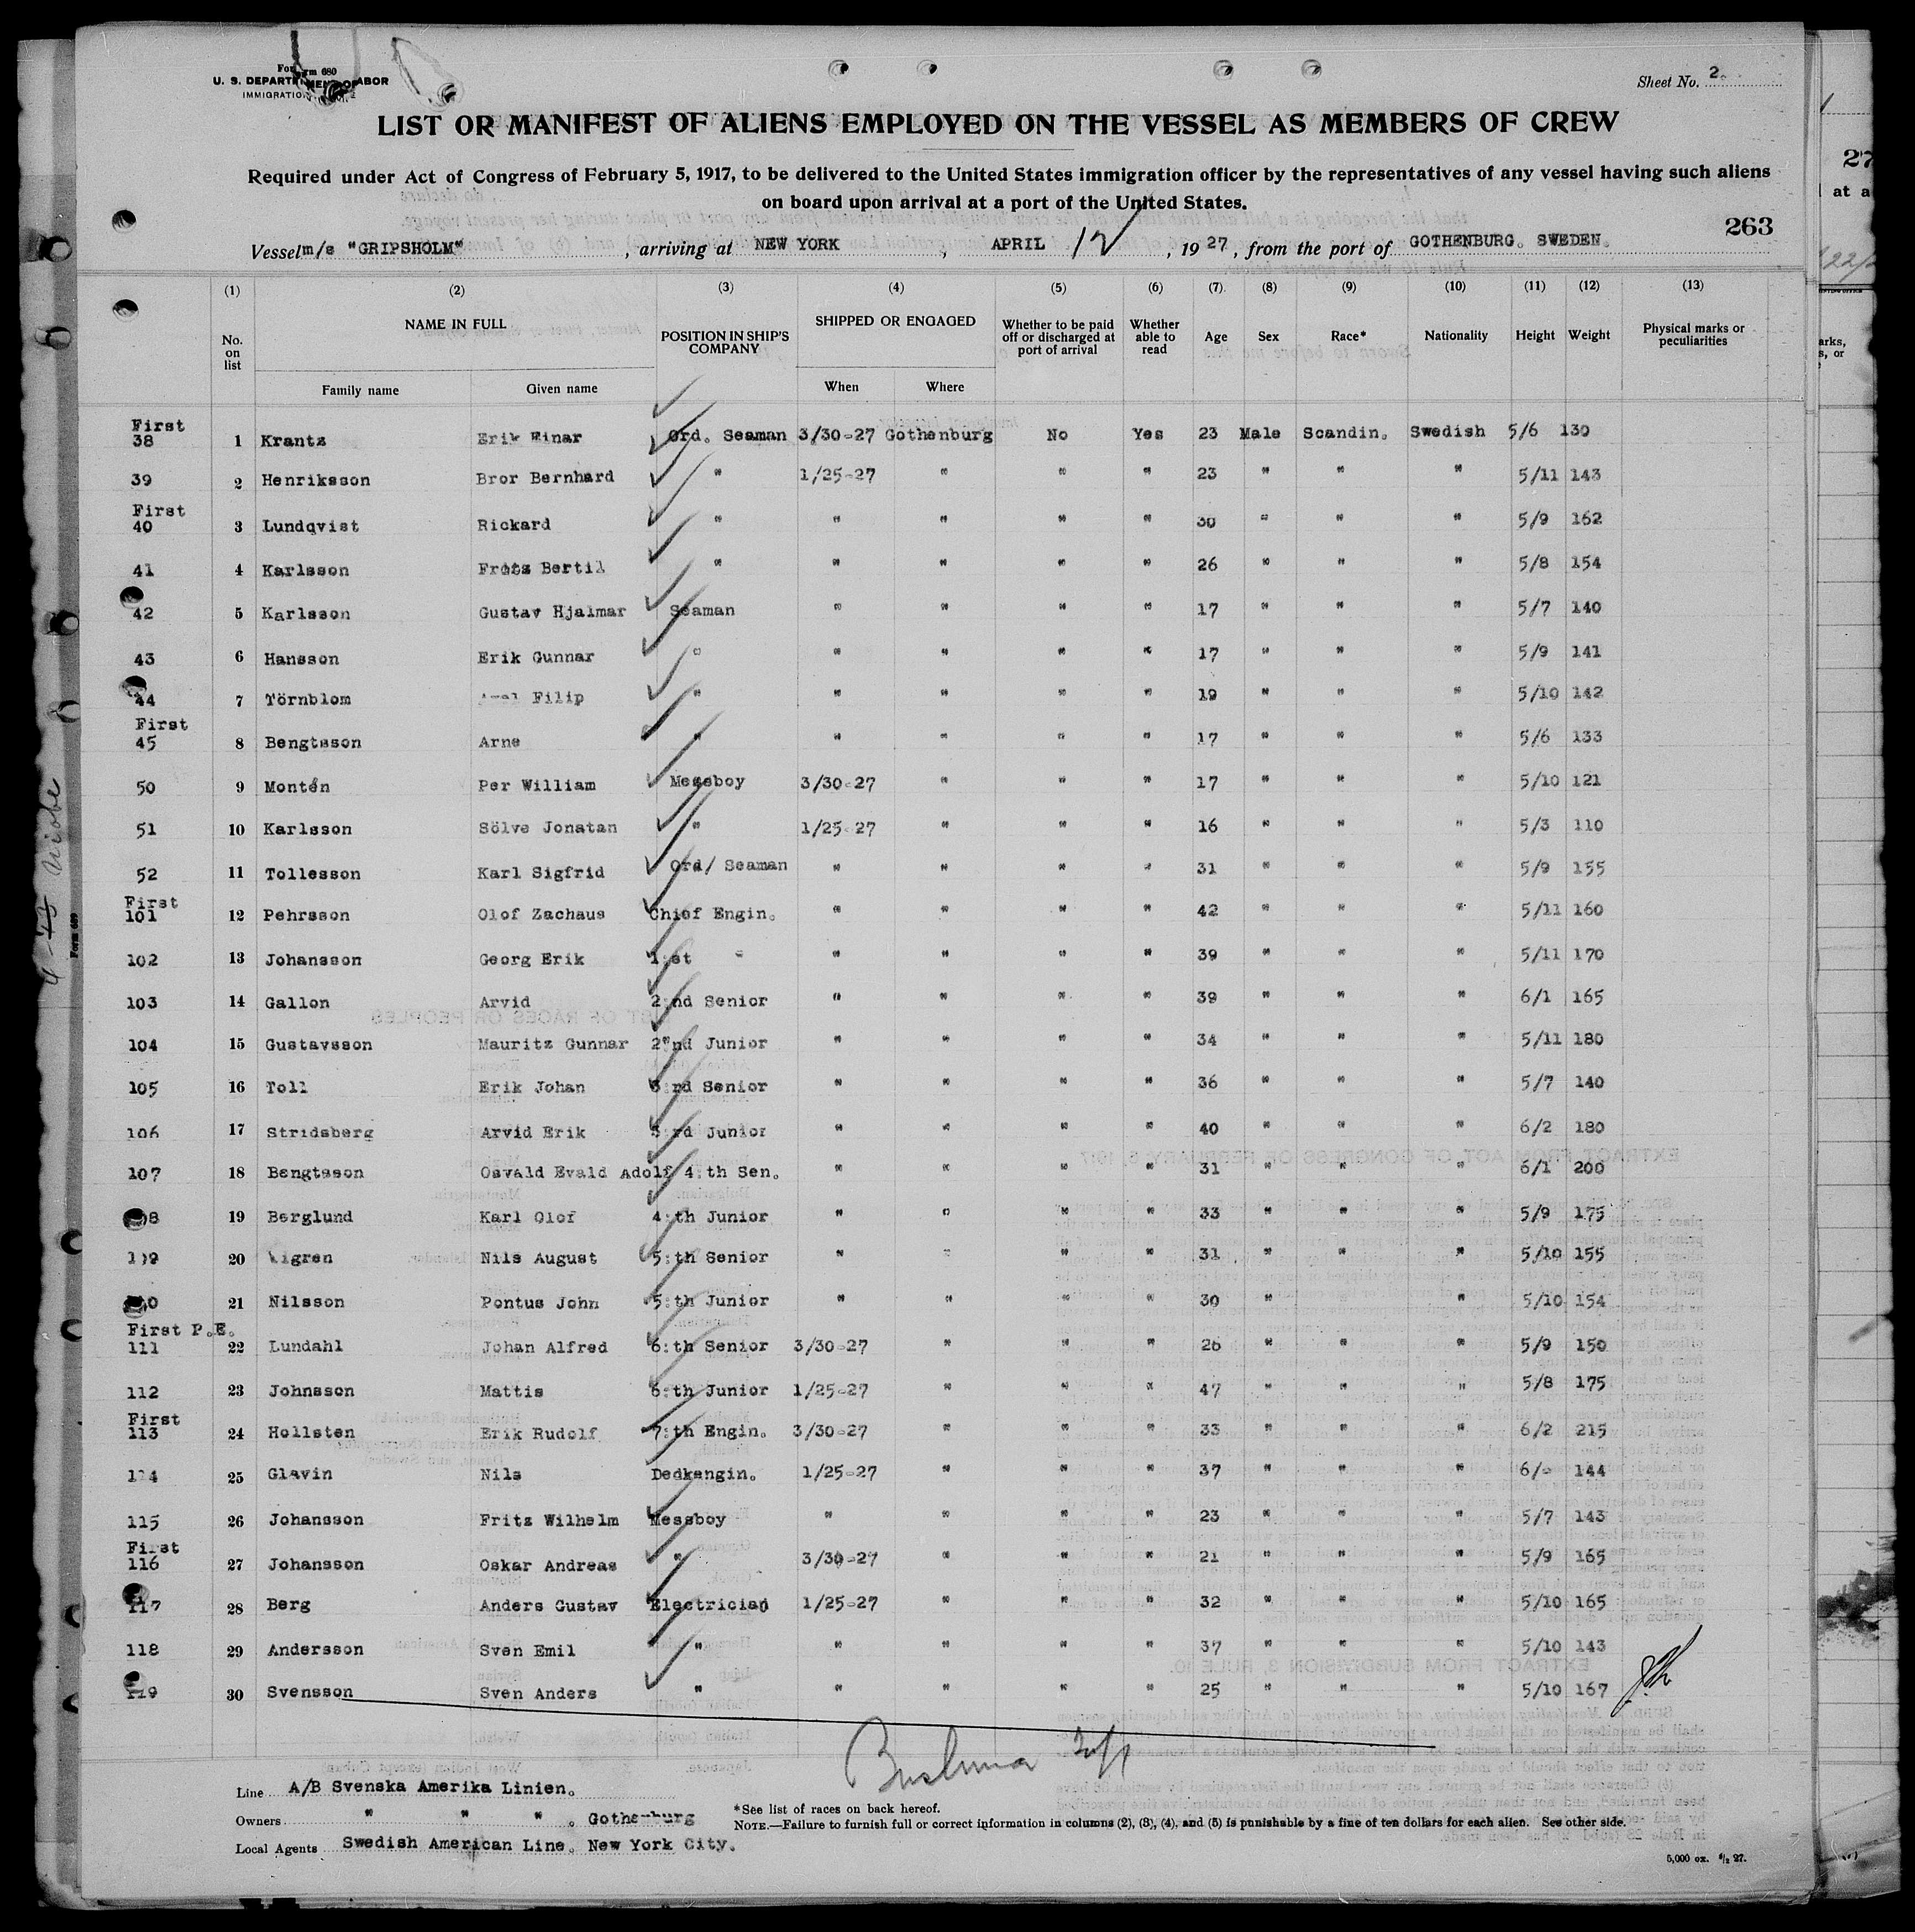 Form 680
U. S. DEPARTMENT OF LABOR
IMMIGRATION
Sheet No. 2.
LIST OR MANIFEST OF ALIENS EMPLOYED ON THE VESSEL AS MEMBERS OF CREW
Required under Act of Congress of February 5, 1917, to be delivered to the United States immigration officer by the representatives of any vessel having such aliens
on board upon arrival at a port of the United States.
263
Vessel m/s "GRIPSHOLM", arriving at NEW YORK, APRIL 12, 1927, from the port of GOTHENBURG. SWEDEN.
(1) (2) (3) (4) (5) (6) (7) (8) (9) (10) (11) (12) (13)
No. on list NAME IN FULL POSITION IN SHIP'S COMPANY SHIPPED OR ENGAGED Whether to be paid off or discharged at port of arrival Whether able to read Age Sex Race* Nationality Height Weight Physical marks or peculiarities
Family name Given name When Where
First
38 1 Krantz Erik Einar Ord. Seaman 3/30-27 Gothenburg No Yes 23 Male Scandin. Swedish 5/6 130
39 2 Henriksson Bror Bernhard " 1/25-27 " " " 23 " " " 5/11 143
First
40 3 Lundqvist Rickard " " " " " 30 " " " 5/9 162
41 4 Karlsson Bertil " " " " " 26 " " " 5/8 154
42 5 Karlsson Gustav Hjalmar Seaman " " " " 17 " " " 5/7 140
43 6 Hansson Erik Gunnar " " " " " 17 " " " 5/9 141
44 7 Törnblom Filip " " " " " 19 " " " 5/10 142
First
45 8 Bengtsson Arne " " " " " 17 " " " 5/6 133
50 9 Montén Per William Messboy 3/30-27 " " " 17 " " " 5/10 121
51 10 Karlsson Sölve Jonatan " 1/25-27 " " " 16 " " " 5/3 110
52 11 Tollesson Karl Sigfrid Ord/ Seaman " " " " 31 " " " 5/9 155
First
101 12 Pehrsson Olof Zachaus Chief Engin. " " " " 42 " " " 5/11 160
102 13 Johansson Georg Erik 1:st " " " " " 39 " " " 5/11 170
103 14 Gallon Arvid 2:nd Senior " " " " 39 " " " 6/1 165
104 15 Gustavsson Mauritz Gunnar 2"nd Junior " " " " 34 " " " 5/11 180
105 16 Toll Erik Johan 3:rd Senior " " " " 36 " " " 5/7 140
106 17 Stridsberg Arvid Erik 3:rd Junior " " " " 40 " " " 6/2 180
107 18 Bengtsson Osvald Evald Adolf 4:th Sen. " " " " 31 " " " 6/1 200
19 Berglund Karl Olof 4:th Junior " " " " 33 " " " 5/9 175
109 20 Nils August 5:th Senior " " " " 31 " " " 5/10 155
21 Nilsson Pontus John 5:th Junior " " " " 30 " " " 5/10 154
First P.E.
111 22 Lundahl Johan Alfred 6:th Senior 3/30-27 " " " 26 " " " 5/9 150
112 23 Johnsson Mattis 6:th Junior 1/25-27 " " " 47 " " " 5/8 175
First
113 24 Hollsten Erik Rudolf 7:th Engin. 3/30-27 " " " 33 " " " 6/2 215
114 25 Glavin Nils Dedkengin. 1/25-27 " " " 37 " " " 144
115 26 Johansson Fritz Wilhelm Messboy " " " " 23 " " " 5/7 143
First
116 27 Johansson Oskar Andreas " 3/30-27 " " " 21 " " " 5/9 165
117 28 Berg Anders Gustav Electrician 1/25-27 " " " 32 " " " 5/10 165
118 29 Andersson Sven Emil " " " " " 37 " " " 5/10 143
119 30 Svensson Sven Anders " " " " " 25 " " " 5/10 167
Line A/B Svenska Amerika Linien.
Owners " " " . Gothenburg
Local Agents Swedish American Line. New York City.
*See list of races on back hereof.
NOTE.—Failure to furnish full or correct information in columns (2), (3), (4), and (5) is punishable by a fine of ten dollars for each alien. See other side.